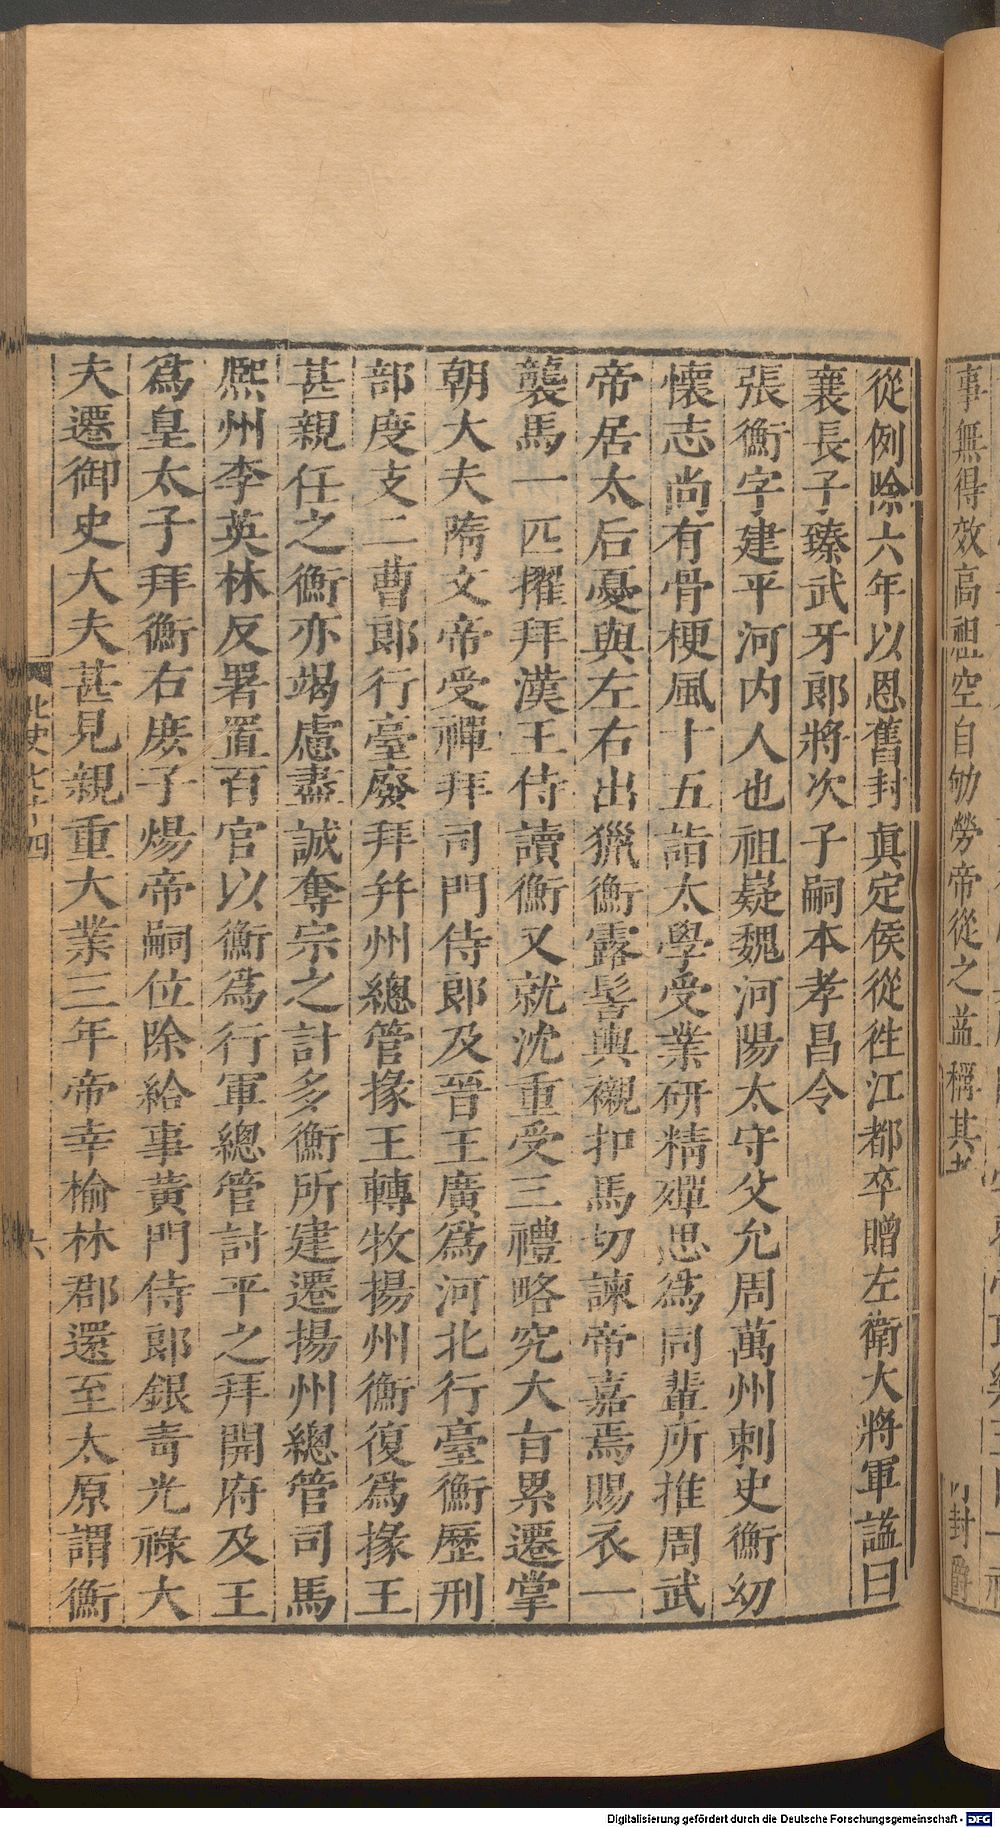 從例除六年以恩舊封真定侯從徃江都卒贈左衛大將軍謚曰
襄長子臻武牙郎將次子嗣本孝昌令
張衡字建平河内人也祖嶷魏河陽太守父允周萬州刺史衡幼
懷志尚有骨梗風十五詣太學受業研精殫思爲同輩所推周武
帝居太后憂與左右出獵衡露髻輿櫬扣馬切諫帝嘉焉賜衣一
襲馬一匹擢拜漢王侍讀衡又就沈重受三禮略究大旨累遷掌
朝大夫隋文帝受禪拜司門侍郎及晉王廣爲河北行臺衡歷刑
部度支二曹郎行臺廢拜并州總管掾王轉牧揚州衡復爲掾王
甚親任之衡亦竭慮盡誠奪宗之計多衡所建遷揚州總管司馬
熈州李英林反署置百官以衡爲行軍總管討平之拜開府及王
爲皇太子拜衡右庶子煬帝嗣位除給事黃門侍郎銀青光祿大
夫遷御史大夫甚見親重大業三年帝幸榆林郡還至太原謂衡
北史七十四
六
事無得效高祖空自劬勞帝從之益稱其孝
封爵
Digitalisierung gefördert durch die Deutsche Forschungsgemeinschaft - DFG